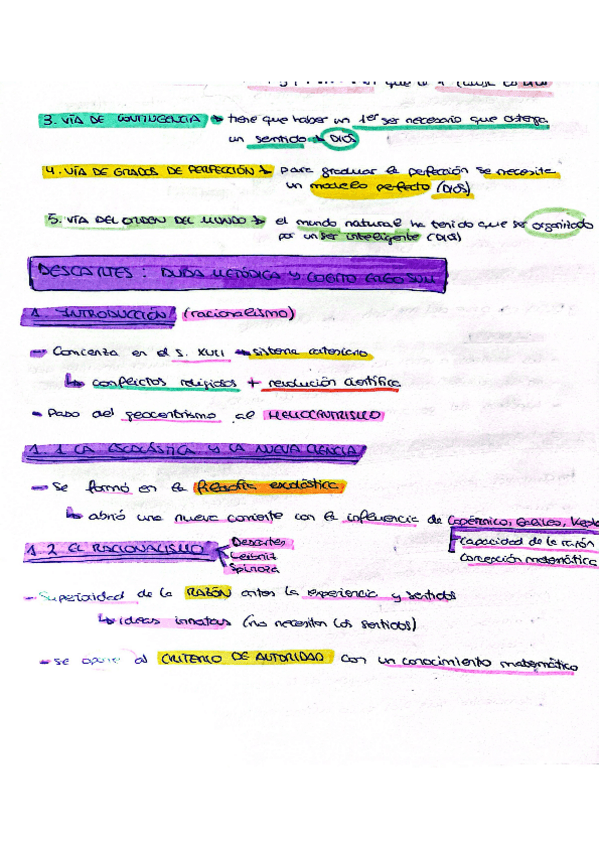 que
3. VÍA DE CONTINGENCIA → tiene que haber un 1er ser necesario que otorga
un sentido → DIOS
4. VÍA DE GRADOS DE PERFECCIÓN → para graduar la perfección se necesita
un modelo perfecto (DIOS)
5. VÍA DEL ORDEN DEL MUNDO → el mundo natural ha tenido que ser organizado
por un ser inteligente (DIOS)
DESCARTES: DUDA METÓDICA Y COGITO ERGO SUM
1. INTRODUCCIÓN (racionalismo)
- Comienza en el S. XVII → sistema cartesiano
↳ conflictos religiosos + revolución científica
- Paso del geocentrismo al HELIOCENTRISMO
1.1 LA ESCOLÁSTICA Y LA NUEVA CIENCIA
- Se formó en la filosofía escolástica
↳ abrió una nueva corriente con la influencia de Copérnico, Galileo, Kepler
Capacidad de la razón
Concepción matemática
1.2 EL RACIONALISMO
Descartes
Leibniz
Spinoza
- Superioridad de la RAZÓN antes la experiencia y sentidos
↳ ideas innatas (no necesitan los sentidos)
- se opone al CRITERIO DE AUTORIDAD con un conocimiento matemático